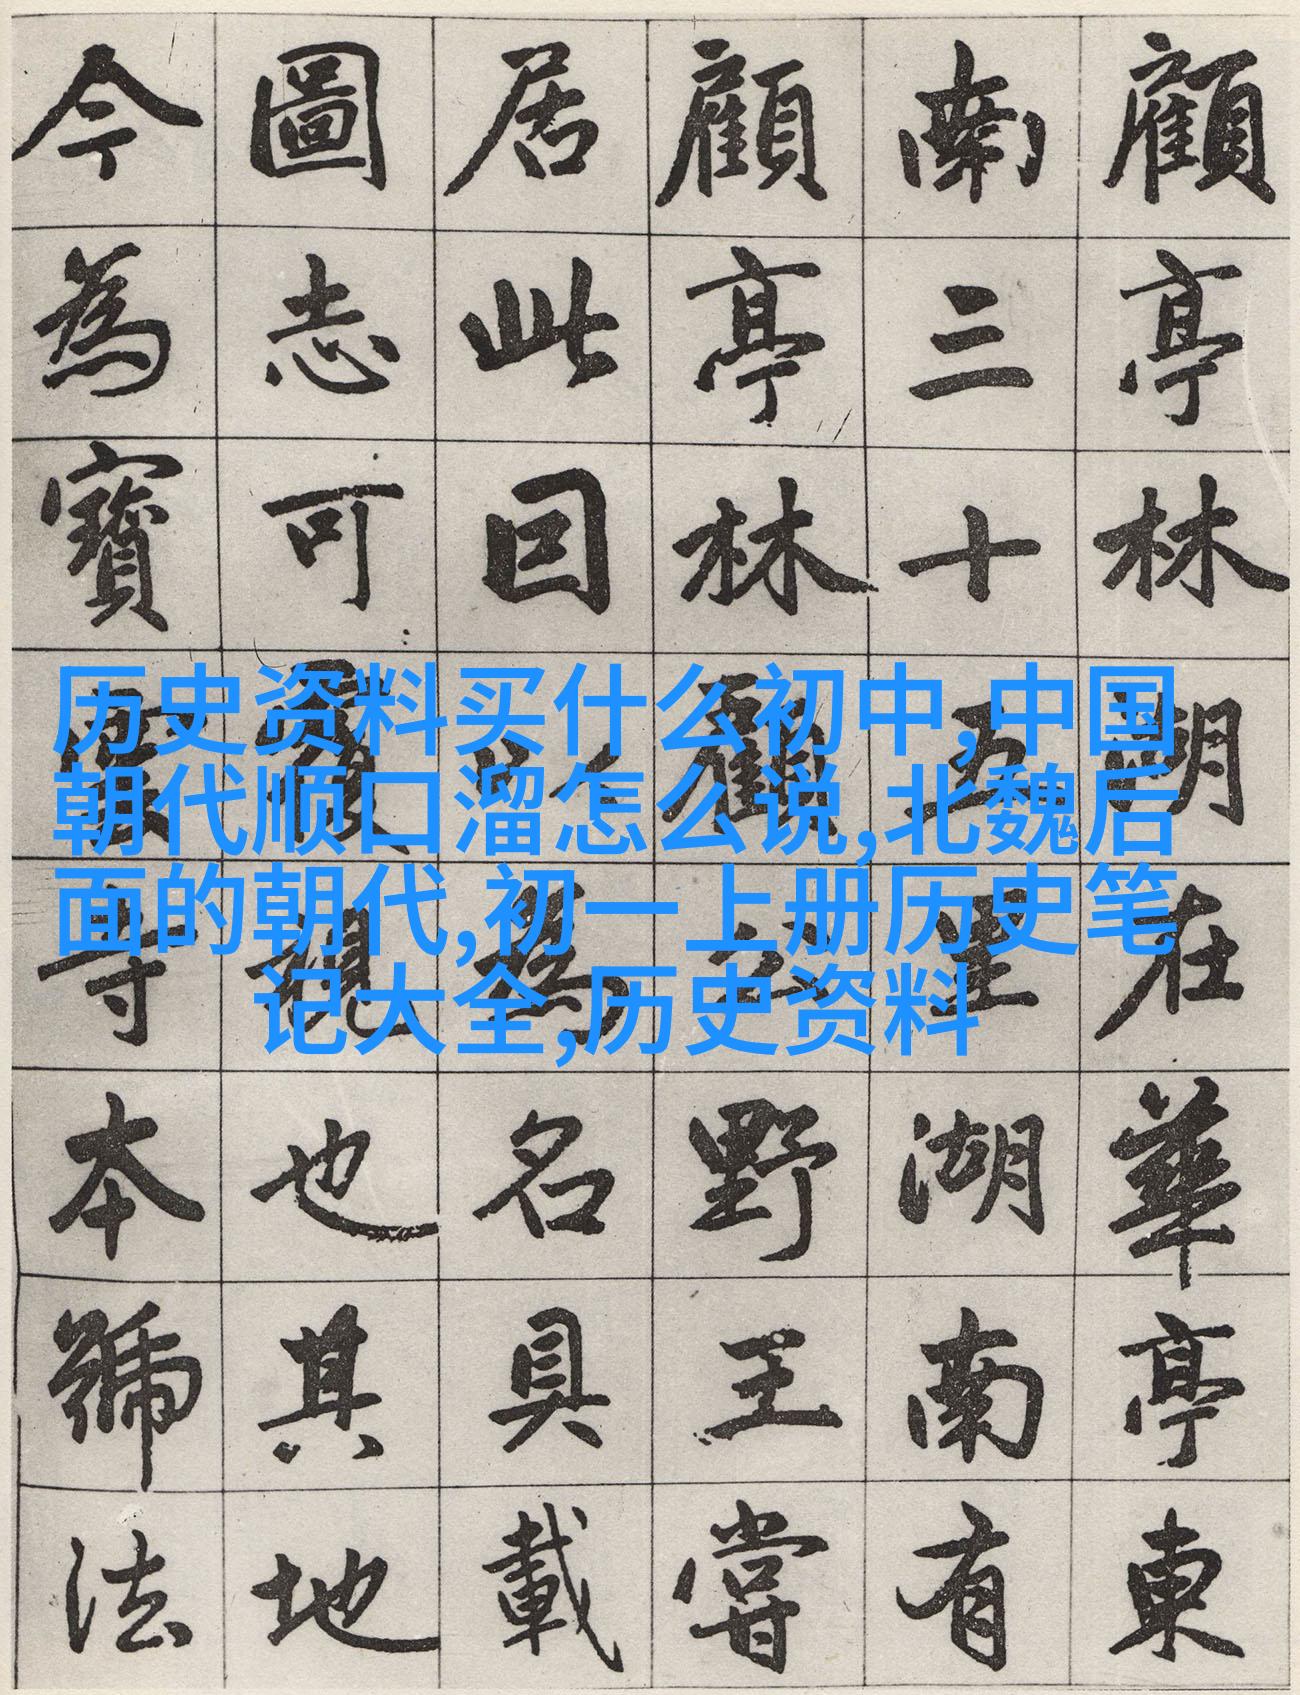 顧亭林湖在華亭東
南三十五里湖南有
顧亭林野王嘗
居此囙以為名具載
圖志可覆視也其地
今為寶雲寺本號法
历史资料买什么初中,中国
朝代顺口溜怎么说,北魏后
面的朝代,初一上册历史笔
记大全,历史资料